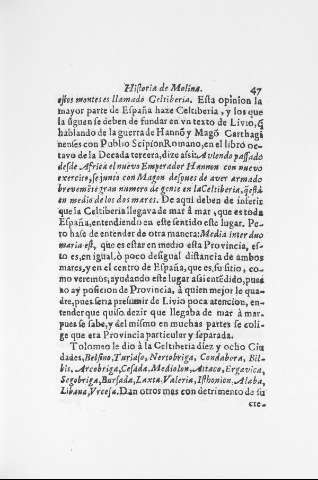 Historia de Molina. 47
estos montes es llamado Celtiberia. Esta opinion la
mayor parte de España haze Celtiberia, y los que
la siguen se deben de fundar en vn texto de Livio, q̃
hablando de la guerra de Hannõ y Magõ Carthagi
nenses con Publio Scipion Romano, en el libro oc-
tavo de la Decada tercera, dize assi: Aviendo passado
desde Africa el nuevo Emperador Hannon con nuevo
exercito, se junto con Magon despues de aver armado
brevemẽte gran numero de gente en la Celtiberia, q̃ está
en medio de los dos mares. De aqui deben de inferir
que la Celtiberia llegava de mar â mar, que es toda
España, entendiendo en este sentido este lugar. Pe-
ro hase de entender de otra manera: Media inter duo
maria est, que es estar en medio esta Provincia, es-
to es, en igual, ò poco desigual distancia de ambos
mares, y en el centro de España, que es, su sitio, co-
mo veremos, ayudando este lugar assi entẽdido, pues
no ay posicion de Provincia, â quien mejor le qua-
dre, pues seria presumir de Livio poca atencion, en-
tender que quiso dezir que llegaba de mar â mar,
pues se sabe, y dél mismo en muchas partes se coli-
ge que era Provincia particular y separada.
Tolomeo le dio à la Celtiberia diez y ocho Ciu
dades, Belsino, Turiaso, Nertobriga, Condabora, Bil-
bis, Arcobriga, Cesada, Mediolon, Attaco, Ergavica,
Segobriga, Bursada, Laxta, Valeria, Isthonion, Alaba,
Libana, Vrcesa. Dan otros mas con detrimento de su
cre-